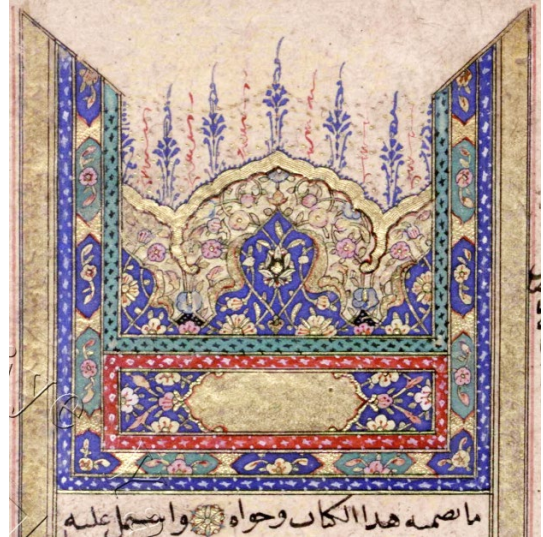 ما تضمنه هذا الكتاب وحواه واشتمل عليه